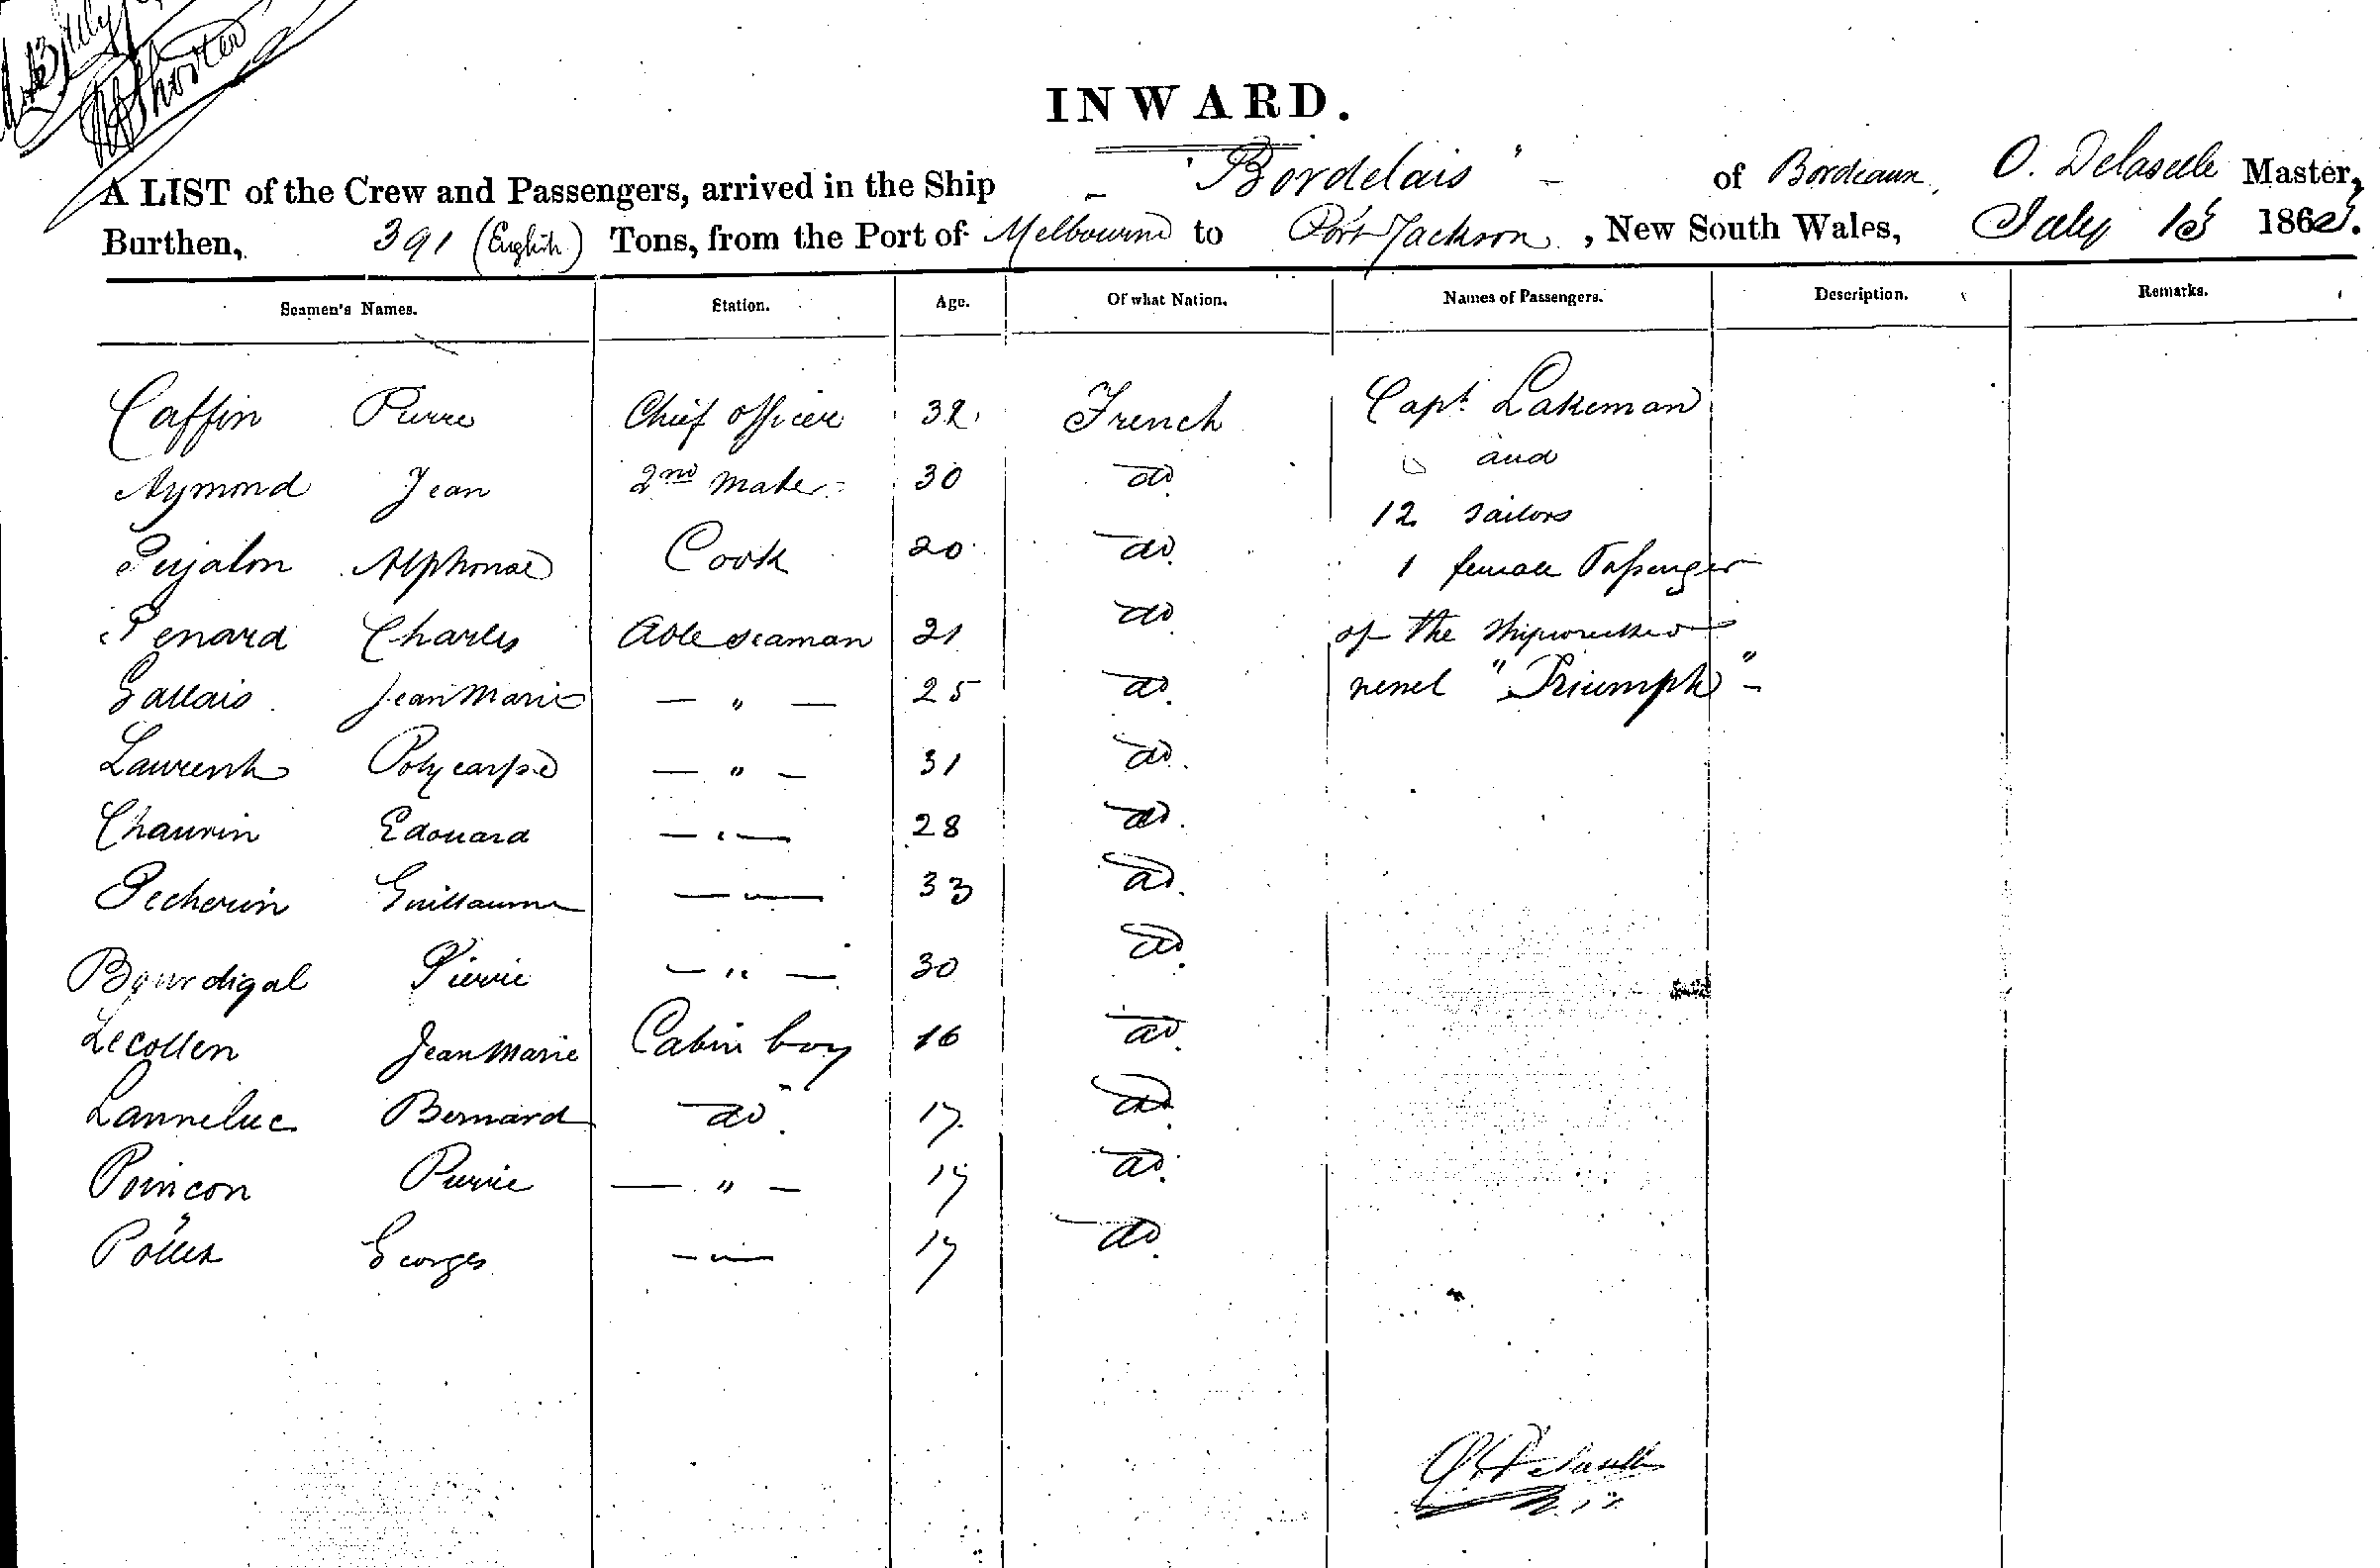 13 July
Shorter
INWARD.
A LIST of the Crew and Passengers, arrived in the Ship "Bordelais" of Bordeaux, O. Delaselle Master,
Burthen, 391 (English) Tons, from the Port of Melbourne to Port Jackson, New South Wales, July 13 1862.
Seamen's Names. Station. Age. Of what Nation. Names of Passengers. Description. Remarks.
Caffin Pierre Chief officer 32 French Capt. Lakeman
and
Aymond Jean 2nd mate 30 do
12 sailors
Pujalon Alphonse Cook 20 do
1 female Passenger
Penard Charles Able seaman 21 do of the shipwrecked
Gallais Jean Marie — " — 25 do vessel "Triumph" -
Laurent Polycarpe — " — 31 do
Chauvin Edouard — " — 28 do
Pecherin Guillaume — " — 33 do
Bourdigal Pierre — " — 30 do
Lecollen Jean Marie Cabin boy 16 do
Lanneluc Bernard do 17 do
Poincon Pierre — " — 17 do
Georges — " — 17 do